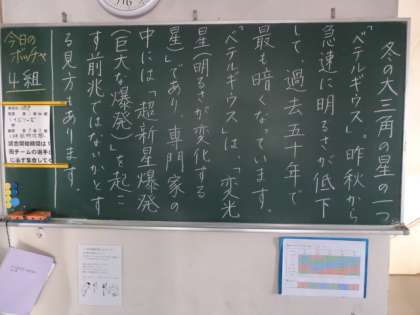 冬の大三角の星の一つ
「ベテルギウス」。昨秋から
急速に明るさが低下
して、過去五十年で
最も暗くなっています。
「ベテルギウス」は、「変光
星(明るさが変化する
星)」であり、専門家の
中には「超新星爆発
(巨大な爆発)」を起こ
す前兆ではないかとす
る見方もあります。
今日の
ボッチャ
4組
試合開始時間は
両チームの選手
にあず集合してく